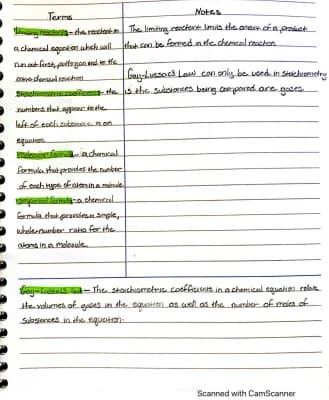 Terms
Limiting reactant - the reactant in
a chemical equation which will
run out first, putting an end to the
entire chemical reaction
Stoichiometric coefficients - the
numbers that appear to the
left of each substance in an
equation
Molecular formula - a chemical
formula that provides the number
of each type of atom in a molecule
Empirical formula - a chemical
formula that provides a simple,
whole-number ratio for the
atoms in a molecule
Notes
The limiting reactant limits the amount of a product
that can be formed in the chemical reaction
Gay-Lussac's Law can only be used in Stoichiometry
is the substances being compared are gases
Gay-Lussac's Law - The stoichiometric coefficients in a chemical equation relate
the volumes of gases in the equation as well as the number of moles of
substances in the equation.
Scanned with CamScanner